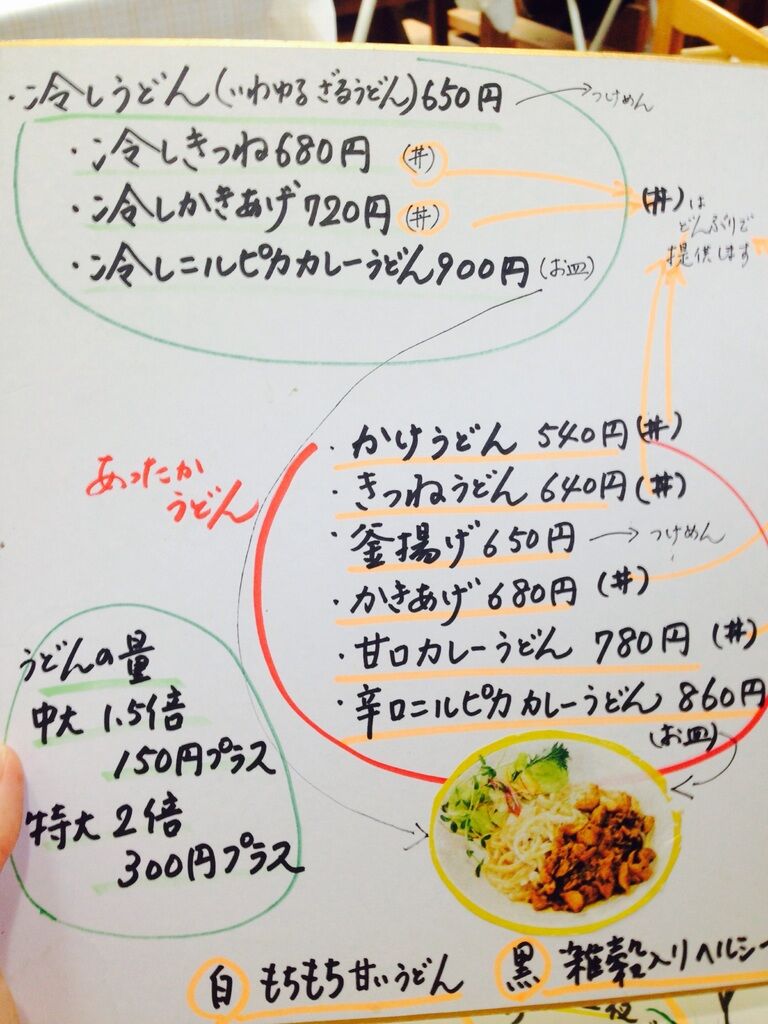 ・冷しうどん(いわゆるざるうどん)650円 → つけめん
・冷しきつね680円 (丼)
・冷しかきあげ720円 (丼)
(丼)は
どんぶりで
提供します
・冷しニルピカカレーうどん900円(お皿)
あったか
うどん
・かけうどん 540円(丼)
・きつねうどん 640円(丼)
・釜揚げ650円 → つけめん
・かきあげ680円 (丼)
・甘口カレーうどん 780円 (丼)
・辛口ニルピカカレーうどん 860円
(お皿)
うどんの量
中大 1.5倍
150円プラス
特大 2倍
300円プラス
白 もちもち甘いうどん
黒 雑穀入りヘルシー